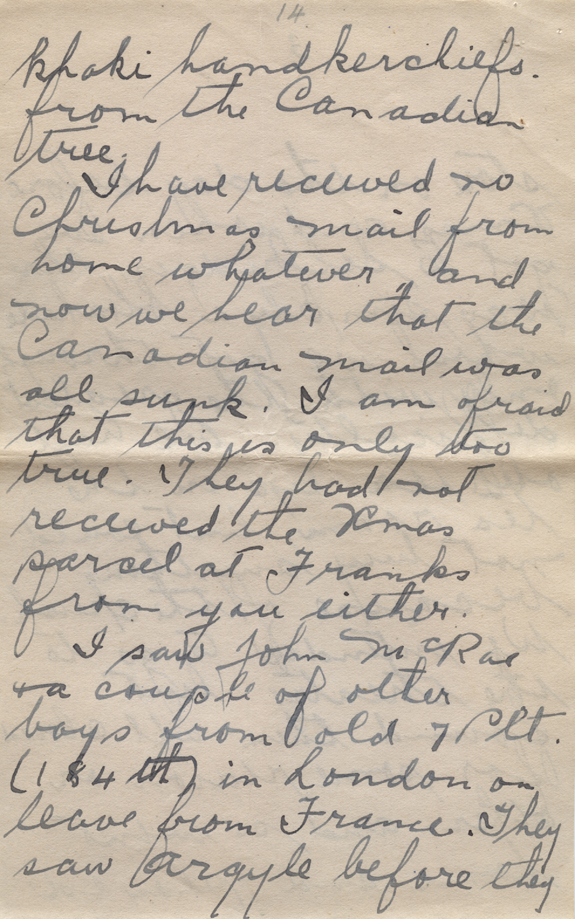 14
khaki handkerchiefs.
from the Canadian
tree.
I have received no
Christmas mail from
home whatever, and
now we hear that the
Canadian mail was
all sunk. I am afraid
that this is only too
true. They had not
received the Xmas
parcel at Franks
from you either.
I saw John McRae
+ a couple of other
boys from old 7 Plt.
(184th) in London on
leave from France. They
saw Argyle before they